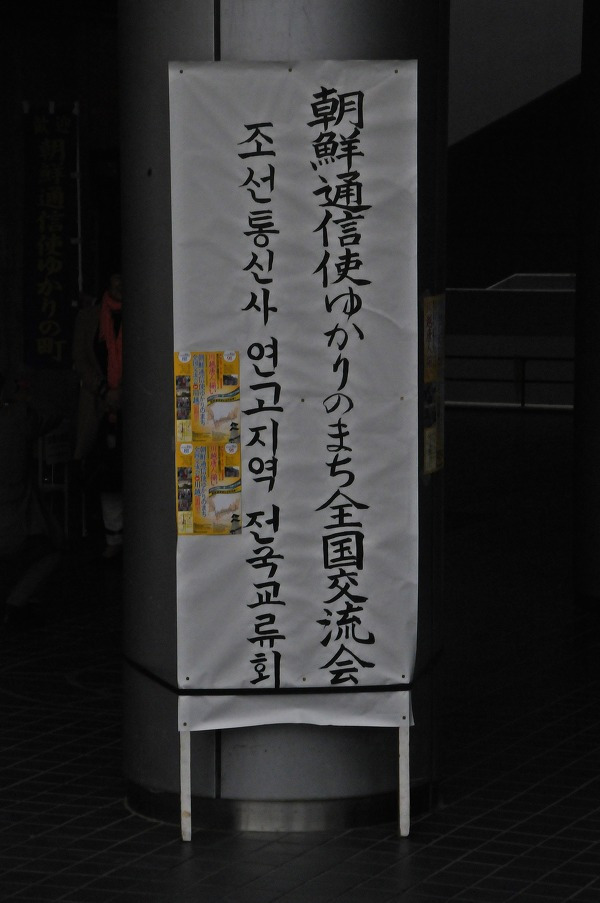 朝鮮通信使ゆかりのまち全国交流会
조선통신사 연고지역 전국교류회
朝鮮通信使ゆかりの町